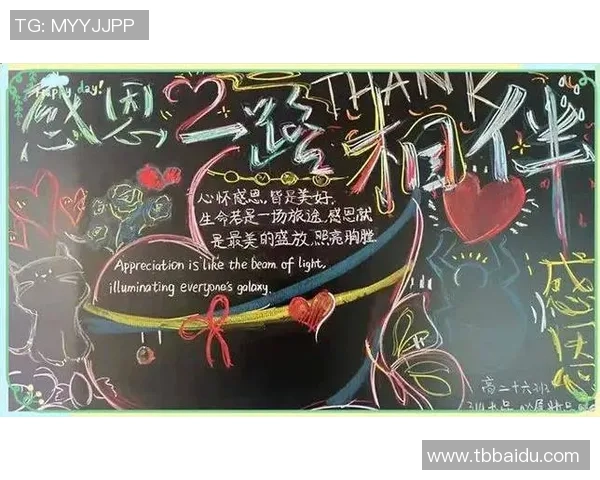 TG: MYYJJPP
Happy day!
THANK
感恩一路相伴
心怀感恩,皆是美好,
生命若是一场旅途,感恩就
是最美的盛放,照亮胸膛
Appreciation is like the beam of light,
illuminating everyone's galaxy.
感恩
高二十六班
www.tbbaidu.com